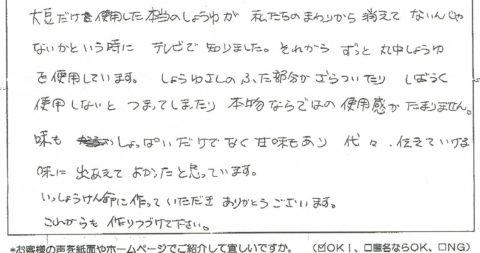 大豆だけを使用した本当のしょうゆが 私たちのまわりから 消えて ないんじゃ
ないかという時に テレビで知りました。それから ずっと 丸中しょうゆ
を使用しています。 しょうゆさしの ふた部分が ざらついたり しばらく
使用しないと つまってしまったり 本物ならではの 使用感が たまりません。
味も しょっぱいだけでなく 甘味もあり 代々、伝えていける
味に 出あえて よかったと思っています。
いっしょうけん命に作って いただき ありがとうございます。
これからも 作りつづけて下さい。
*お客様の声を紙面やホームページでご紹介して宜しいですか。 (☑OK!、□匿名ならOK、□NG)